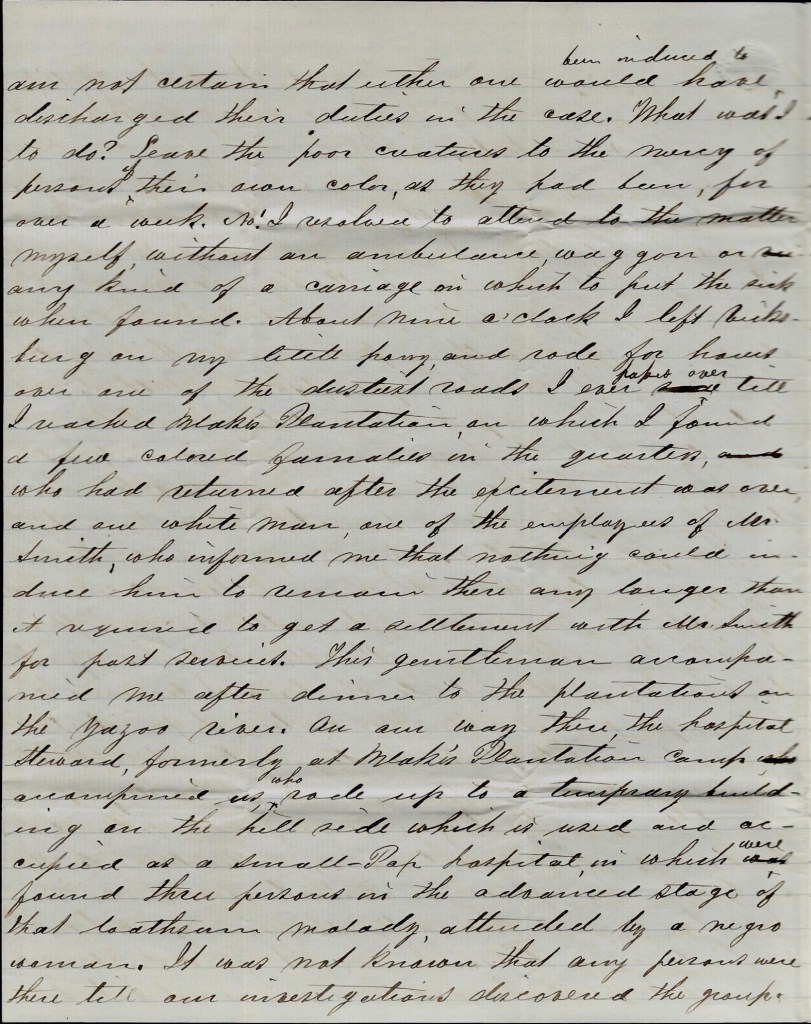 been induced to
am not certain that either one would have
discharged their duties in the case. What was I
to do? Leave the poor creatures to the mercy of
persons of their own color, as they had been, for
over a week. No! I resolved to attend to the matter
myself, without an ambulance, waggon or
any kind of a carriage on which to put the sick
when found. About nine o'clock I left Vicks-
burg on my little pony, and rode for hours
passed over
over one of the dustiest roads I ever till
I reached Blake's Plantation, on which I found
a few colored families in the quarters, and
who had returned after the excitement was over,
and one white man, one of the employees of Mr.
Smith, who informed me that nothing could in-
duce him to remain there any longer than
it required to get a settlement with Mr. Smith
for past services. This gentleman accompa-
nied me after dinner to the plantations on
the Yazoo river. On our way there, the hospital
Steward, formerly at Blake's Plantation camp who
accompnied us, who rode up to a temprary build-
ing on the hill side which is used and oc-
cupied as a Small-Pox hospital, in which were was
found three persons in the advanced stage of
that loathsum malady, attended by a negro
woman. It was not known that any persons were
there till our investigations discovered the group.